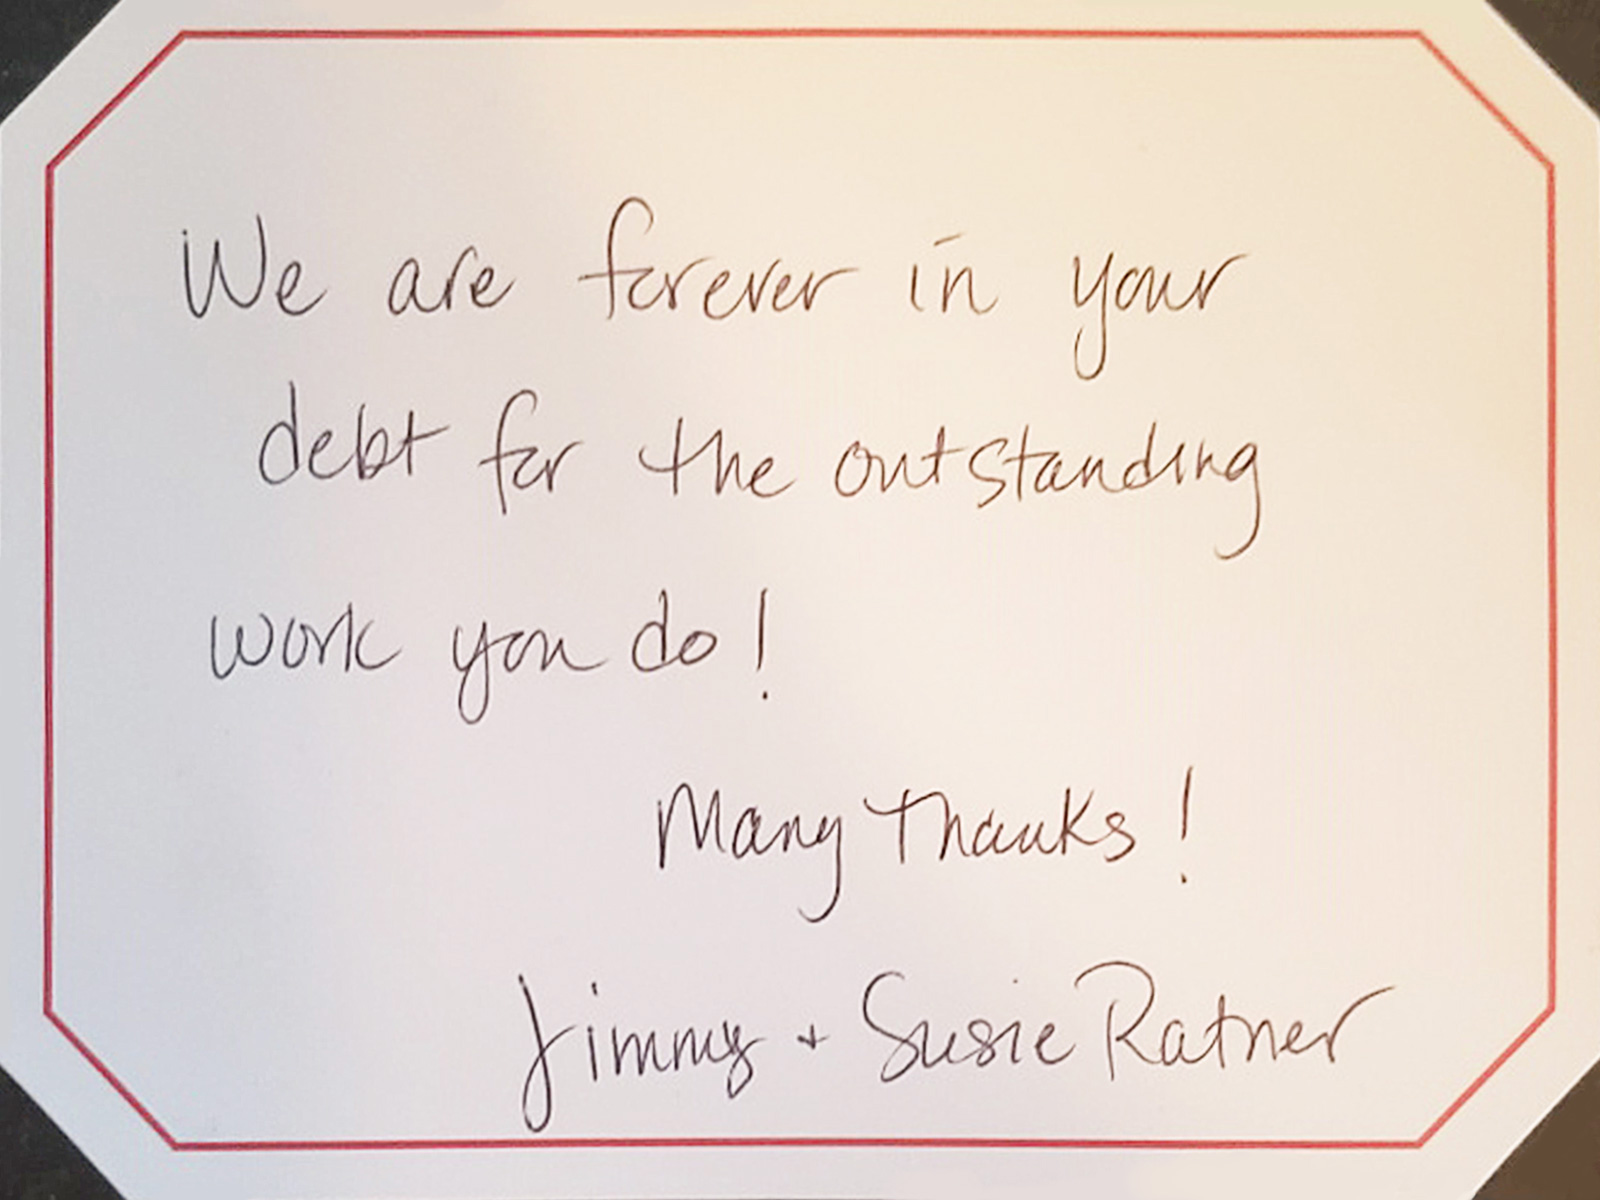 We are forever in your
debt for the outstanding
work you do!
Many Thanks!
Jimmy + Susie Ratner